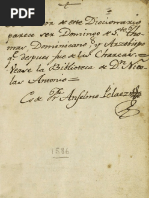 de este Diccionario
parece ser Domingo de S.to Tho-
mas, Dominicano, y Arzobispo
q.e despues fue de las Charcas.
Vease la Biblioteca de D.n Nico-
las Antonio.
C. de Fr. Anselmo Pelaez
1586